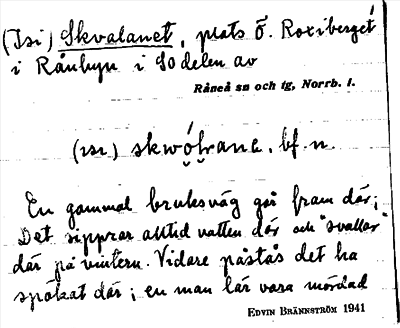 (Isi) Skvalanet, plats Ö. Roxiberget
i Rånbyn i SO delen av
Råneå sn och tg, Norrb. l.
(ısı) skwọ́lrane, bf. n.
En gammal bruksväg går fram där;
Det sipprar alltid vatten där och "svallar"
där på vintern. Vidare påstås det ha
spökat där; en man lär vara mördad
EDVIN BRÄNNSTRÖM 1941